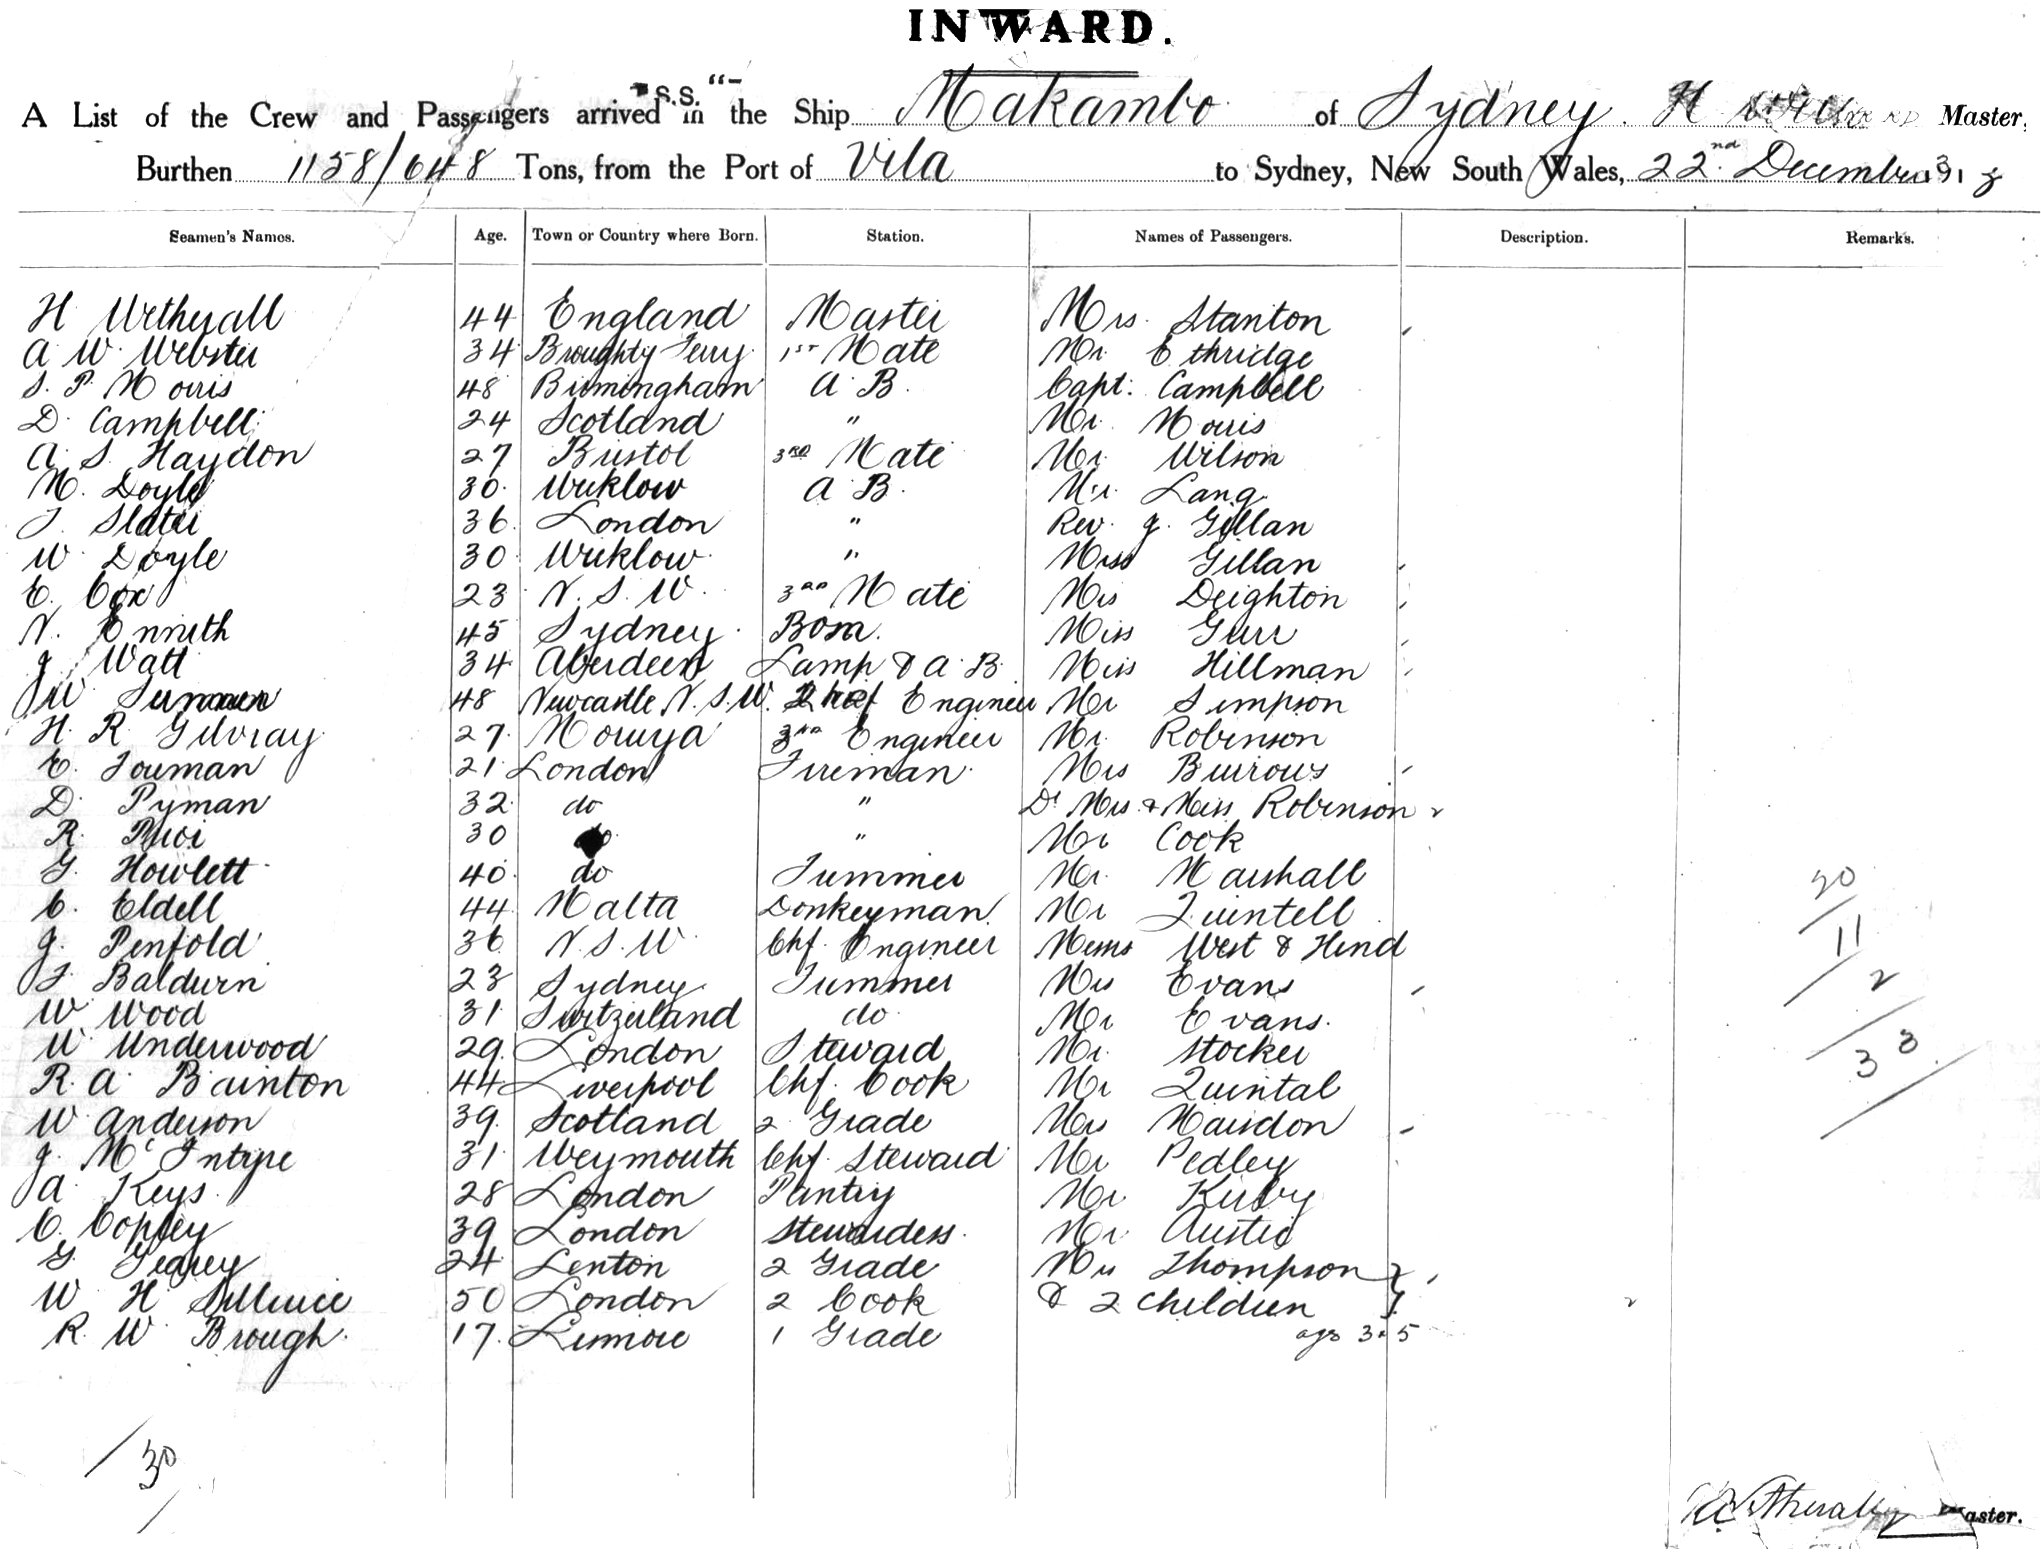 INWARD.
"S.S."
A List of the Crew and Passengers arrived in the Ship Makambo of Sydney. H Master,
Burthen 1158/648 Tons, from the Port of Vila to Sydney, New South Wales, 22nd December 191
Seamen's Names. Age. Town or Country where Born. Station. Names of Passengers. Description. Remarks.
H Wetherall 44 England Master Mrs. Stanton
A W. Webster 34 Broughty Ferry 1st Mate Mr. Ethridge
S. P. Morris 48 Birmingham A B. Capt. Campbell
D. Campbell 24 Scotland " Mr. Morris
A. S. Haydon 27 Bristol 3rd Mate Mr. Wilson
M. Doyle 30. Wicklow A B. Mr. Lang
J. Slater 36. London " Rev. J. Gillan
W. Doyle 30 Wicklow. " Miss Gillan
E. Cox 23 N. S. W. 3rd Mate Mrs Deighton
N. 45 Sydney. Bosn. Miss Gurr
J. Watt 34 Aberdeen Lamp & A. B. Miss Hillman
W. 48 Newcastle N. S. W. Engineer Mr Simpson
H. R. Gilvray 27. Moruya 3rd Engineer Mr. Robinson
E. Touman 21 London Fireman. Mrs Burrows
D. Pyman 32 do " Dr Mrs. & Miss Robinson
R. Price 30 do " Mr Cook
G. Howlett 40. do Trimmer Mr. Marshall
C. Eldell 44. Malta Donkeyman Mr Quintell
J. Penfold 36 N. S. W. Chf. Engineer Messrs West & Hind
F. Baldwin 23 Sydney. Trimmer Mrs Evans
W Wood 31 Switzerland do. Mr Evans.
W Underwood 29. London Steward Mr. Stocker
R. A Bainton 44 Liverpool Chf. Cook Mr Quintal
W Anderson 39. Scotland 2 Grade Mrs Maisdon
J. McIntyre 31 Weymouth Chf. Steward Mr Pedley
A. Keys. 28 London Pantry Mr Kirby
C. Copley 39. London Stewardess. Mr. Austid
G. 24 Lenton 2 Grade Mrs Thompson }
W H 50 London 2 Cook & 2 children }
R. W Brough. 17. Lismore 1 Grade age 3 & 5
30
11
2
33
30
Wetherall Master.